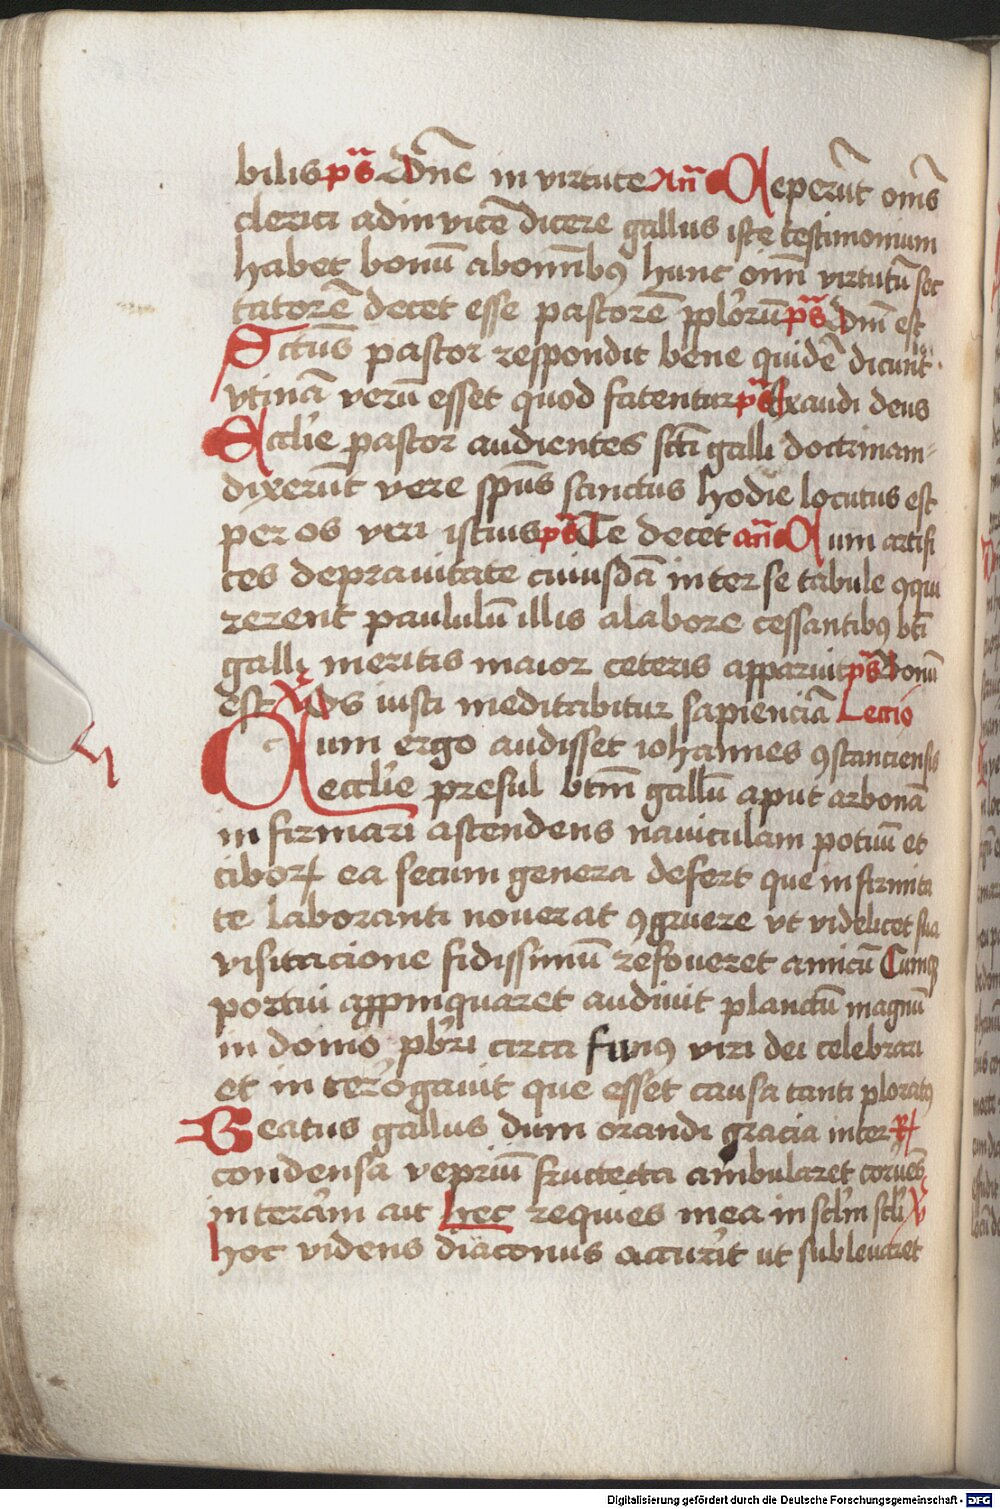 bilis ps̄ Dn̄e in virtute An̄ Ceperūt om̄s
clerici adinvicē dicere gallus iste testimonium
habet bonū abom̄ibꝯ hunc om̄i virtutū sec
tatorē decet esse pastorē pplorū ps̄ Dn̄i est
Sctūs pastor respondit bene quidē dicunt
vtinā verū esset quod fatentur ps̄ Exaudi deus
Ecclīe pastor audientes sc̄ti galli doctrinam
dixerūt vere spūs sanctus hodie locutus est
per os veri istius ps̄ Te decet an̄ Cum artifi
ces deprauitate cuiusdā inter se tabule ꝯqui
rerent paululū illis alabore cessantibꝯ bt̄i
galli meritis maior ceteris apparuit ps̄ Bonū
est v̄ Os iusti meditabitur sapienciā Lectio
Cum ergo audisset iohannes ꝯstanciensis
ecclīe presul bt̄m gallū aput arbonā
infirmari ascendens nauiculam potuū et
ciboꝝ ea secum genera defert que infirmita
te laboranti nouerat ꝯgruere vt videlicet sua
visitacione fidissimū refoueret amicū Cumqꝫ
portui appinquaret audiuit planctū magnū
in domo pbr̄i circa funꝯ viri dei celebrari
et interogauit que esset causa tanti ploratꝯ
Beatus gallus dum orandi gracia inter R̄
condensa vepriū fructecta ambularet
interām ait Hec requies mea in sclm̄ scl̄i v̄
hoc videns diaconus accurit ut subleuaret